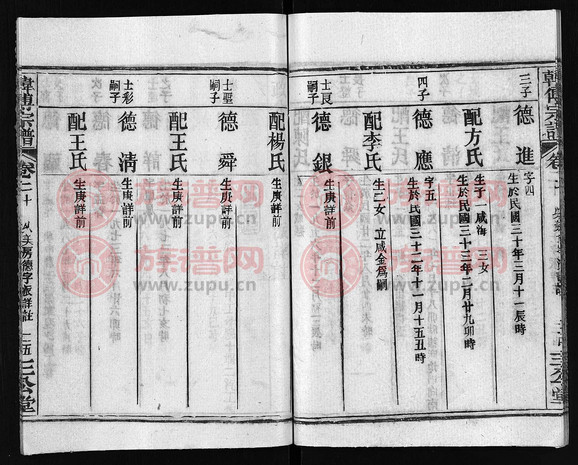 韓傅宗譜
卷二十
三公堂
三子
德進
字四
生於民國三十年三月十一辰時
配方氏
生子一 咸海 三女
生於民國三十三年二月廿九卯時
四子
德應
字五
生於民國三十二年十一月十五丑時
配李氏
生二女 立咸金爲嗣
士良
嗣子
德銀
生庚詳前
配楊氏
生庚詳前
士聖
嗣子
德舜
生庚詳前
配王氏
生庚詳前
士彩
嗣子
德清
生庚詳前
配王氏
生庚詳前
韓傅宗譜
卷二十
房德字派詳註
二五
三公堂
族普网
www.zupu.cn